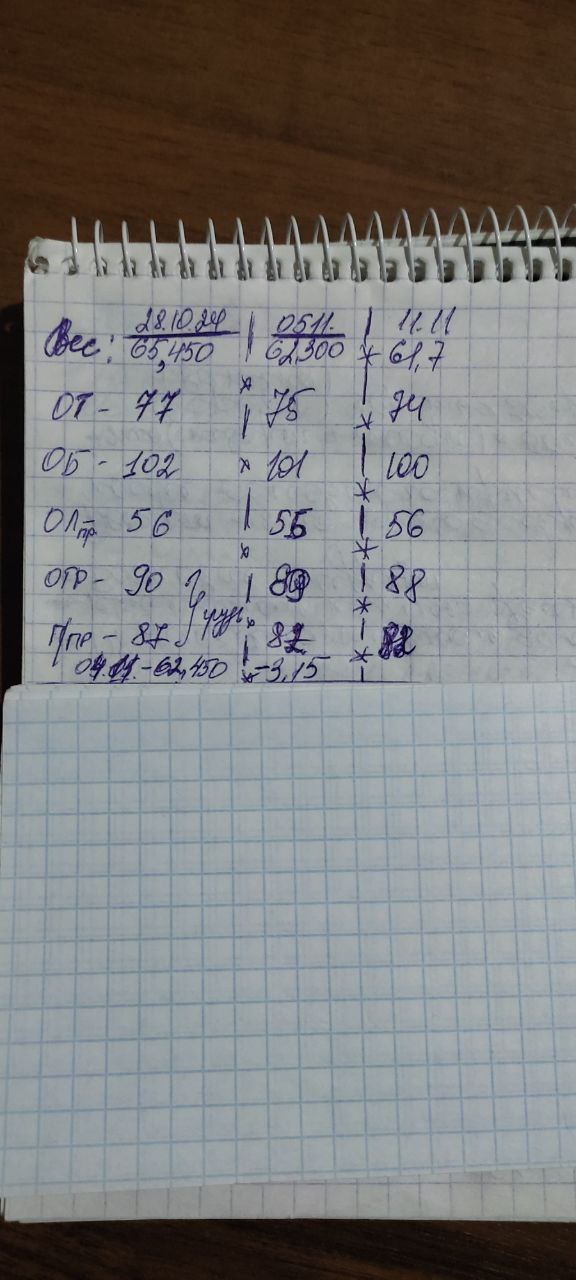 28.10.24 | 05.11. | 11.11
Вес: 65,450 | 62,300 | 61,7
ОТ - 77 | 75 | 74
ОБ - 102 | 101 | 100
ОЛпр 56 | 55 | 56
ОГР - 90 | 89 | 88
П/гр - 87 | 82
04.11. - 62,450 | -3,15